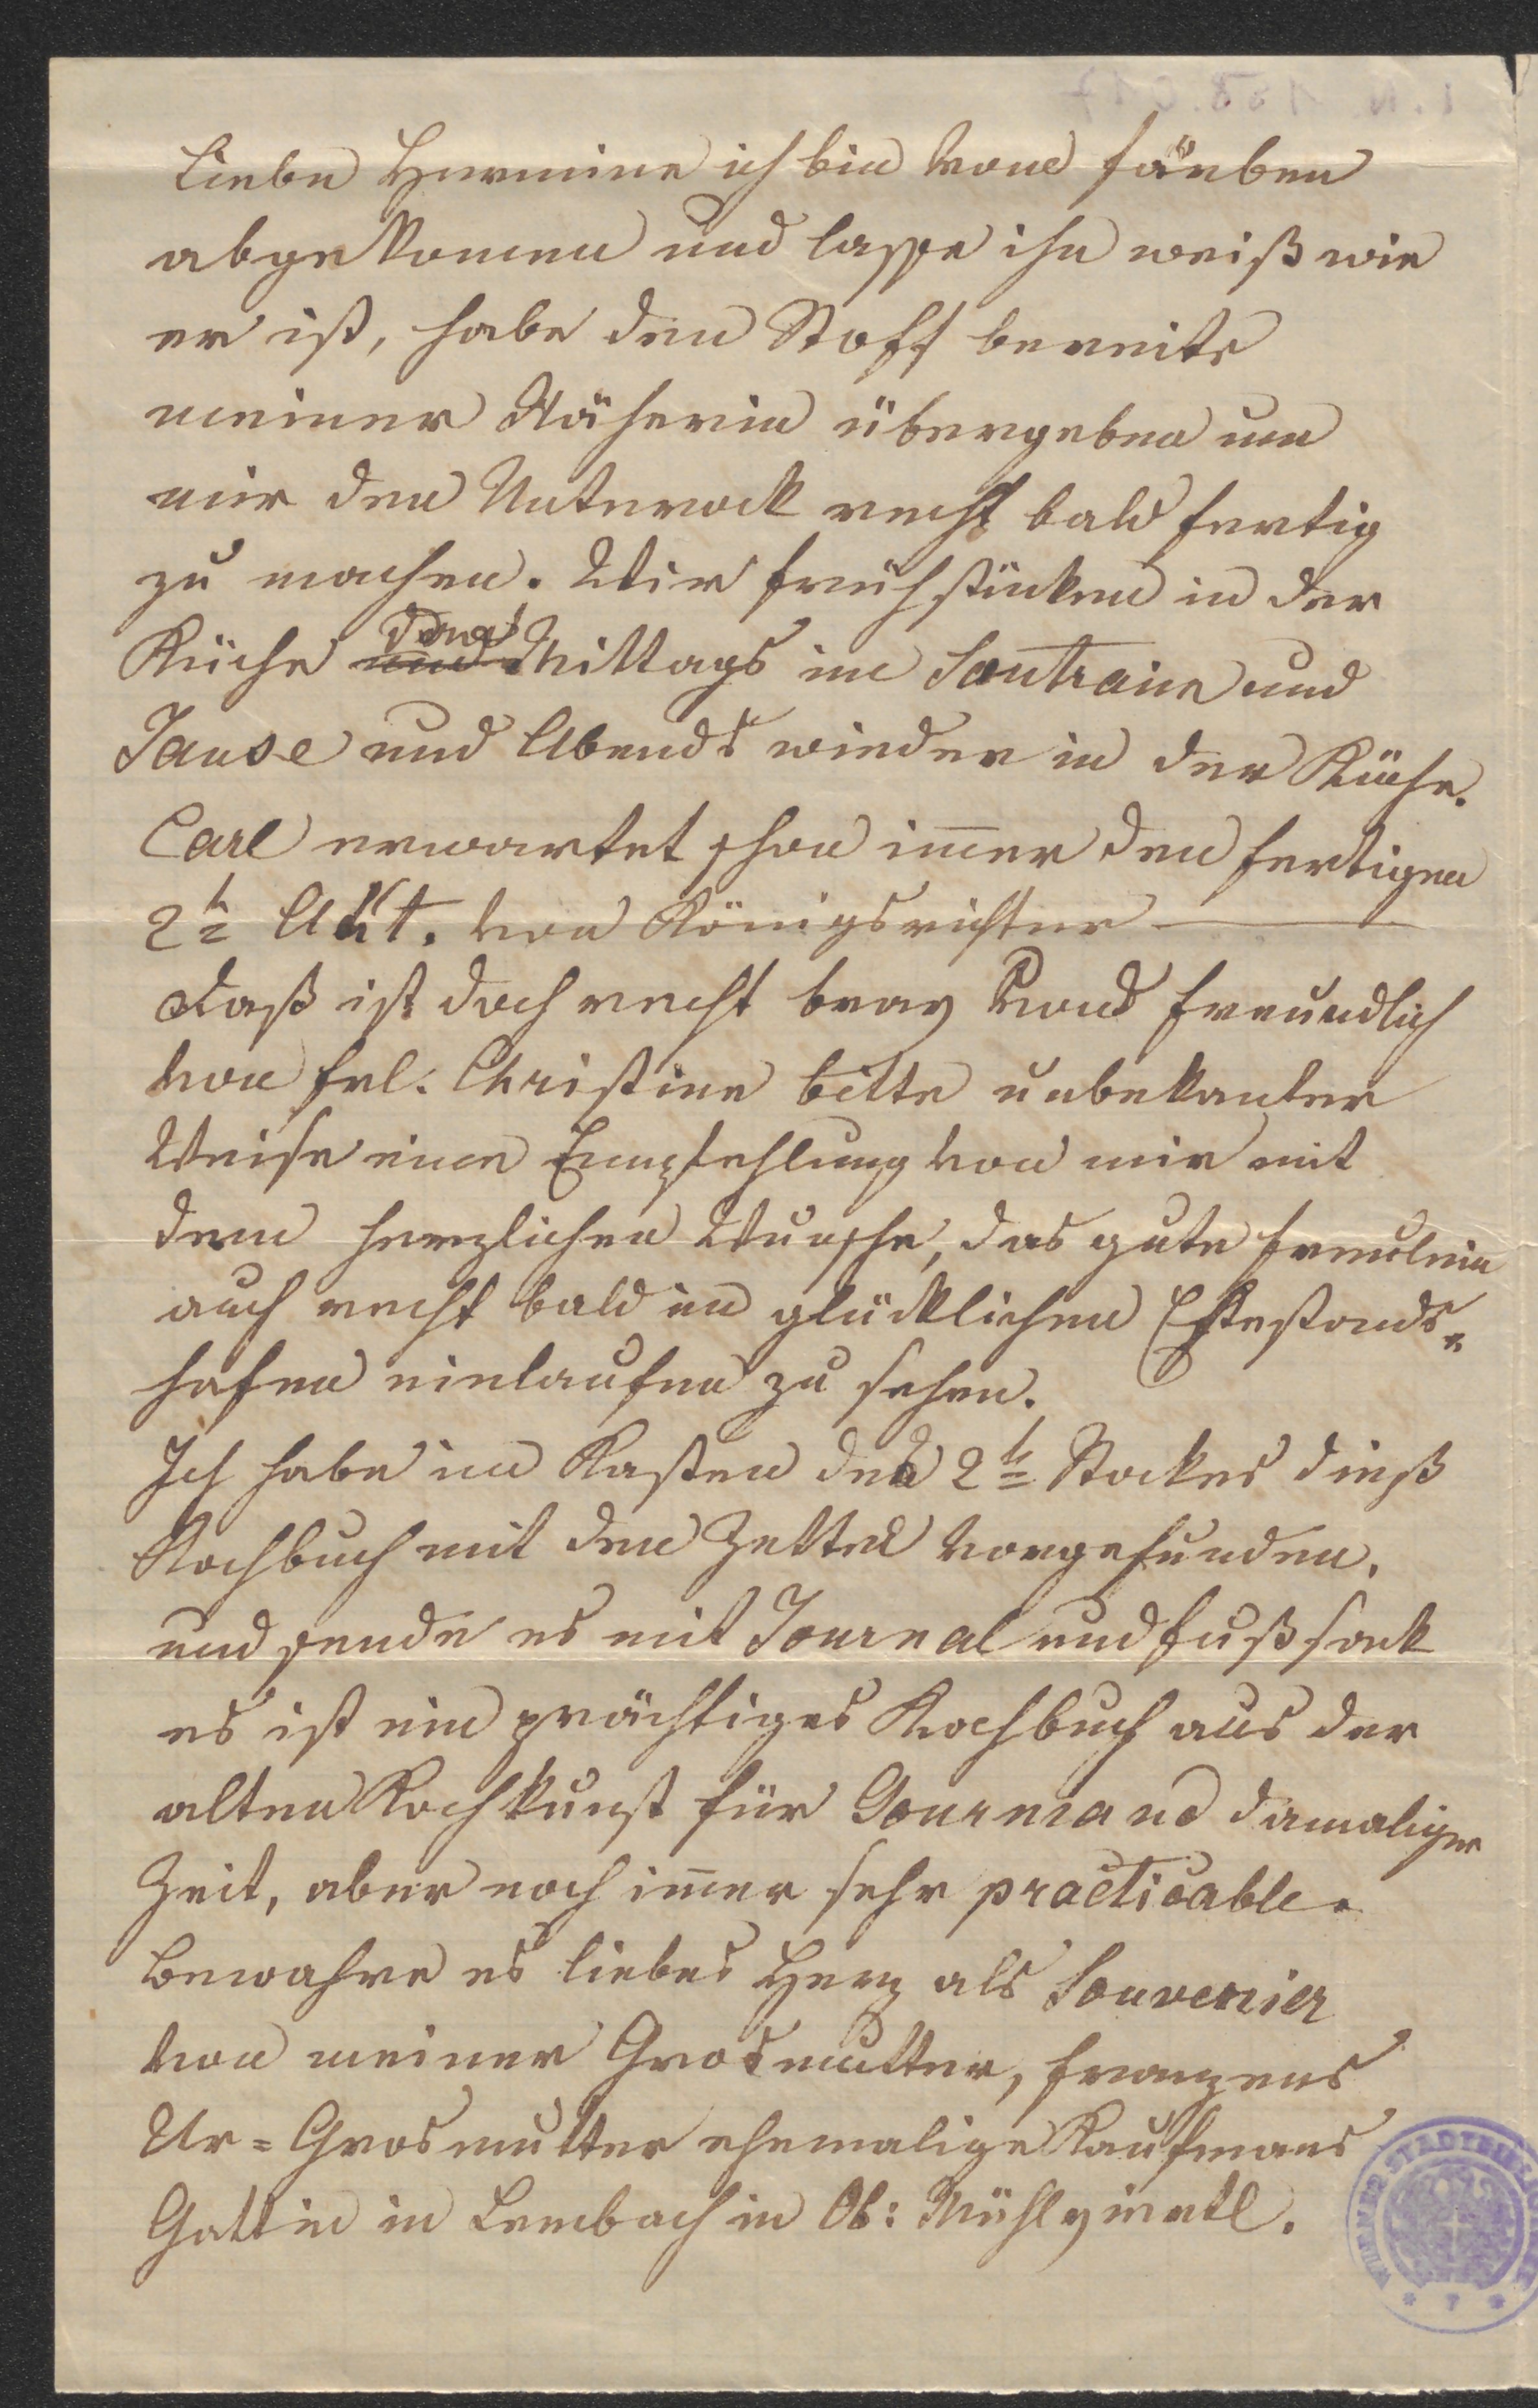 Liebe Hermine ich bin vom färben
abgekomen und lasse ihn weiß wie
er ist, habe den Stoff bereits
meiner Näherin übergeben um
mir den Unterrock recht bald fertig
zu machen. Wir frühstücken in der
Küche und dann Mittags im Soutrain und
Jause und Abends wieder in der Küche.
Carl erwartet schon im̅er den fertigen
2t Akt. von Königsrichter —
Daß ist doch recht brav und freundlich
von Frl. Christine bitte unbekanter
Weise eine Empfehlung von mir mit
dem herzlichen Wunsche, das gute Freulein
auch recht bald im glücklichen Ehestands=
hafen einlaufen zu sehen.
Ich habe im Kasten des 2t Stockes dieß
Kochbuch mit den Zettel vorgefunden.
und sende es mit Journal und Fußsack
es ist ein prächtiges Kochbuch aus der
alten Kochkunst für Gourmand damaliger
Zeit, aber noch im̅er sehr practicable.
Bewahre es liebes Herz als Souvenier
von meiner Grosmutter, Franzens
Ur=Grosmutter ehemalige Kaufmans
Gattin in Lembach in Ob: Mühlviertl.